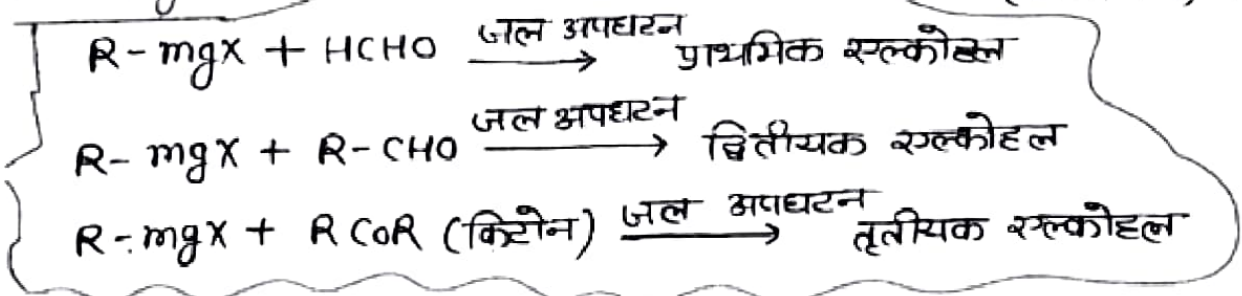 R-mgx + HCHO जल अपघटन → प्राथमिक एल्कोहल
R-mgx + R-CHO जल अपघटन → द्वितीयक एल्कोहल
R-mgx + RCOR (किटोन) जल अपघटन → तृतीयक एल्कोहल